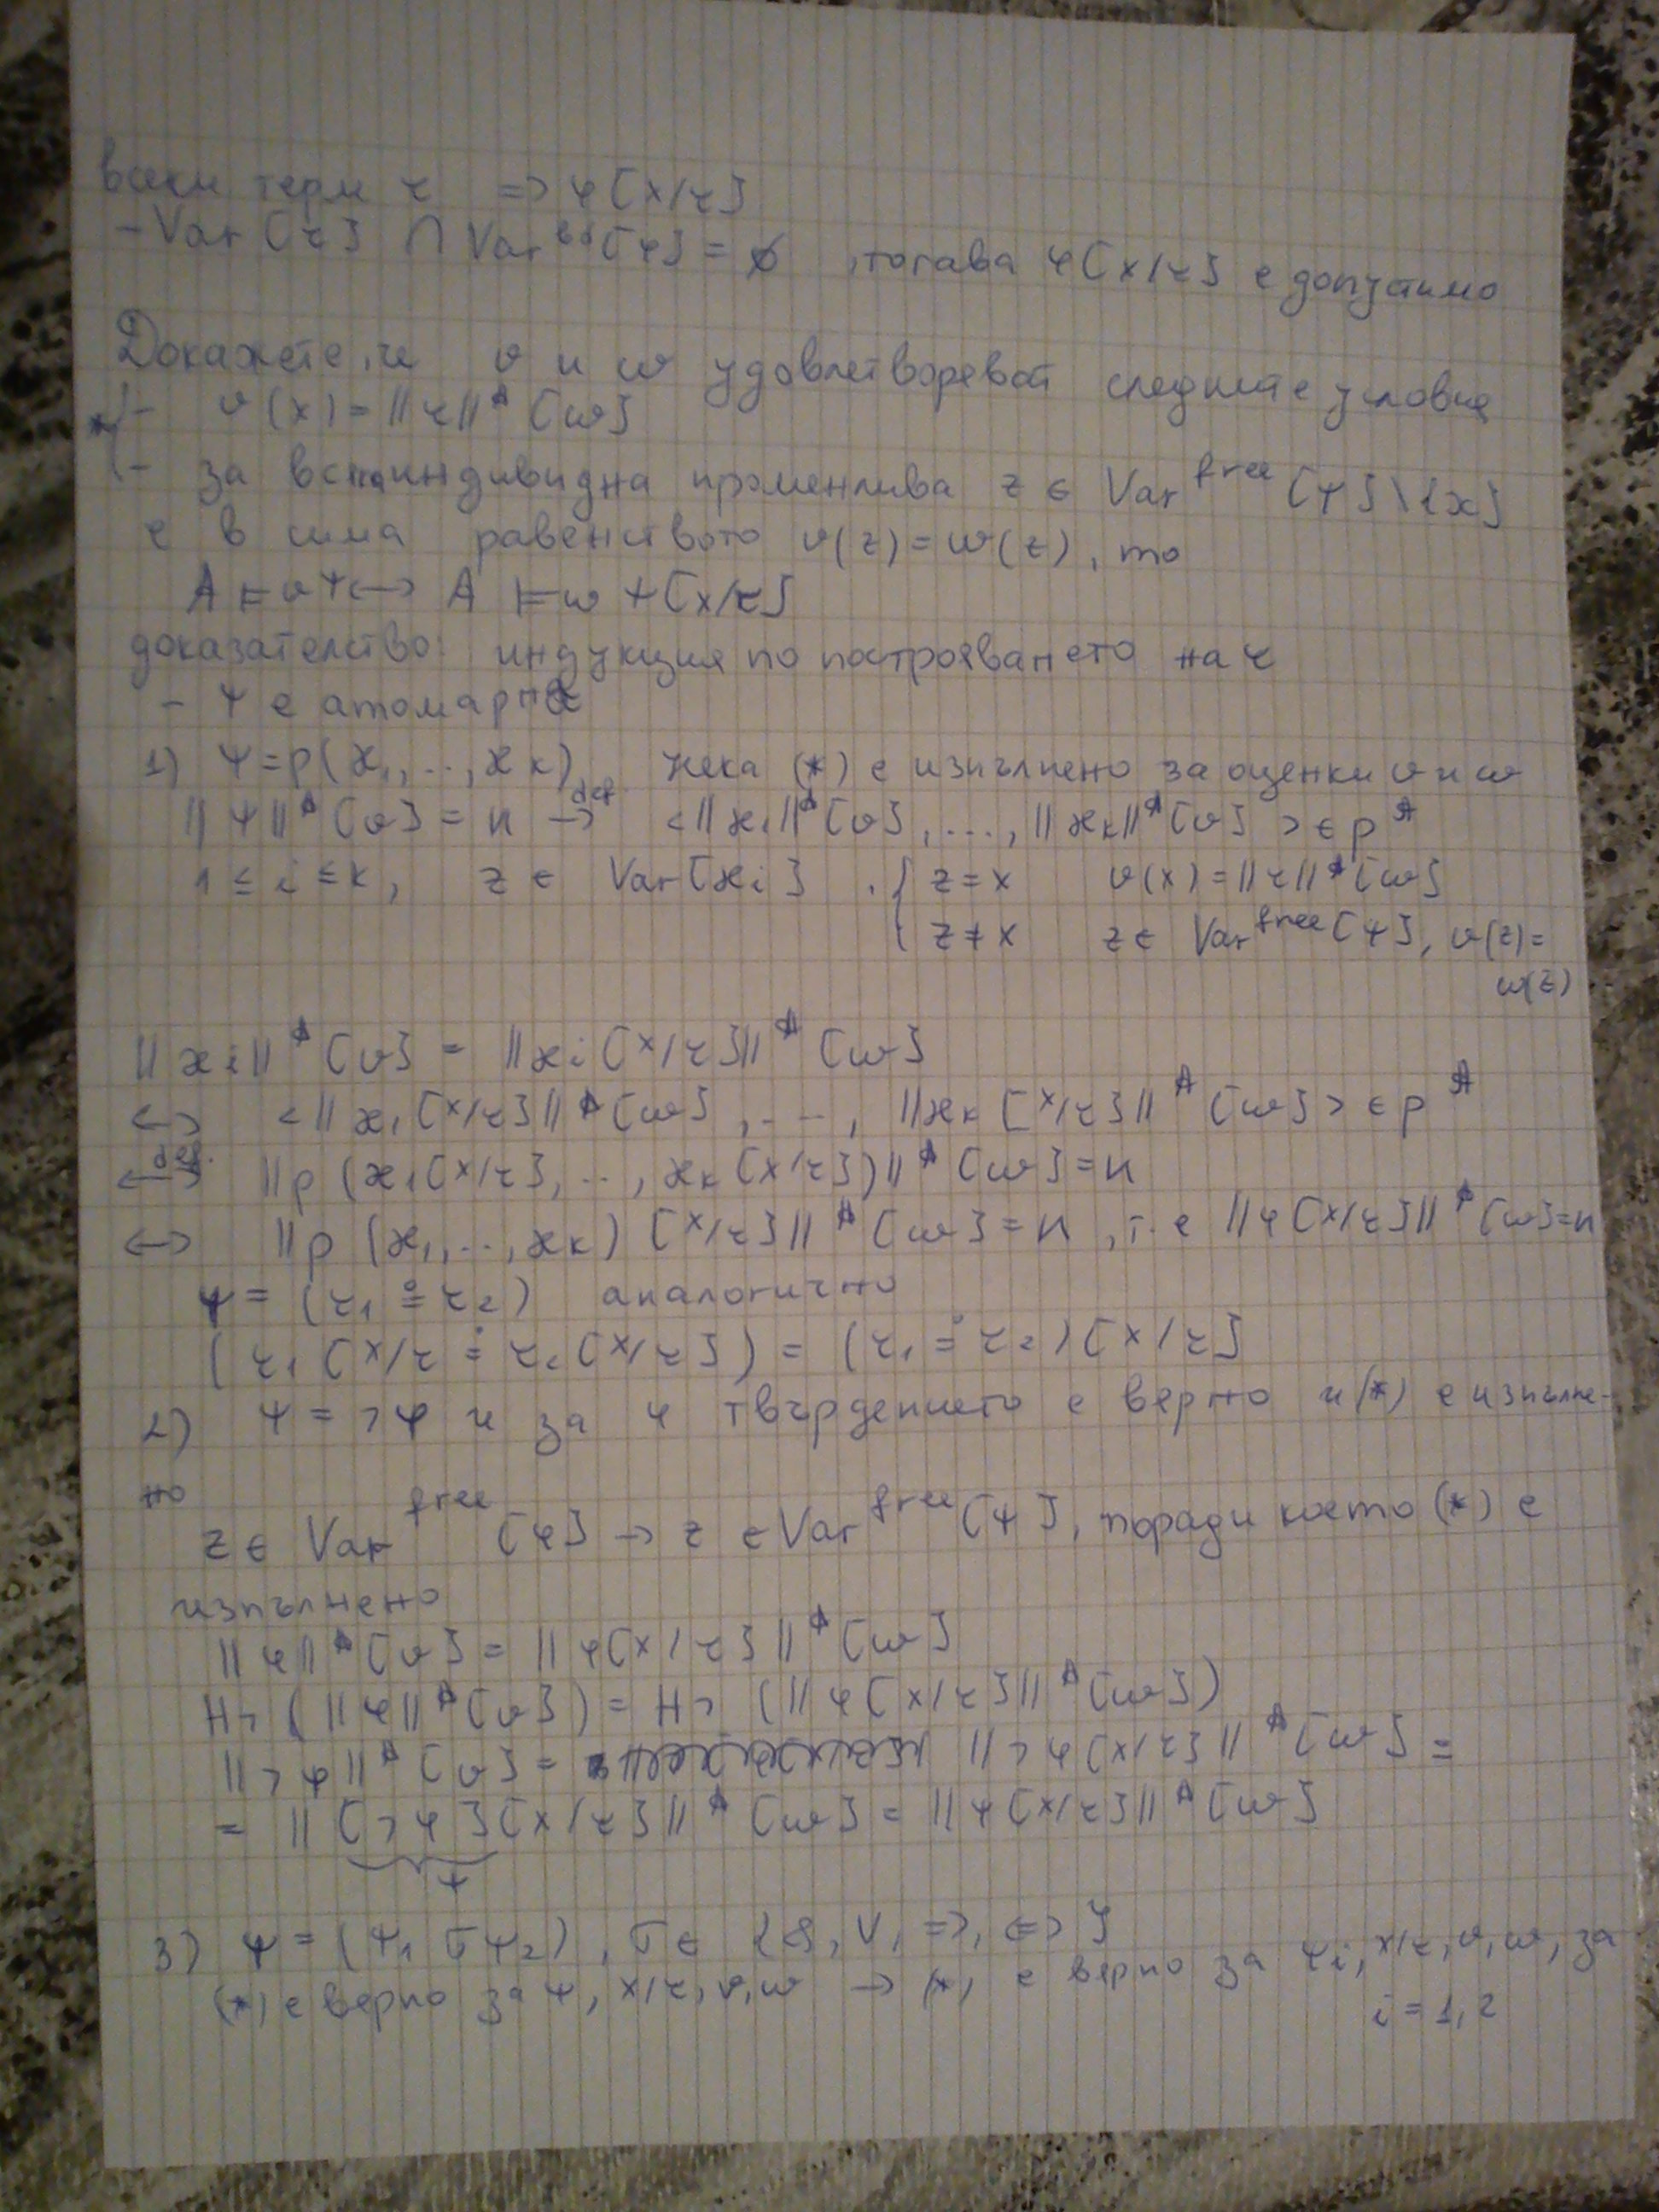 всеки терм τ => φ[x/τ]
- Var[τ] ∩ Var^bd[φ] = ∅, тогава φ[x/τ] е допустимо
Докажете, че v и w удовлетворяват следните условия
* - v(x) = ||τ||^A [w]
- за всяка индивидна променлива z ∈ Var^free[ψ]\{x}
е в сила равенството v(z) = w(z), то
A ⊨v ψ <-> A ⊨w ψ[x/τ]
доказателство: индукция по построяването на τ
- ψ е атомарна
1) ψ = p(ϰ₁, .., ϰₖ) нека (*) е изпълнено за оценки v и w
||ψ||^A [v] = и def -> <||ϰ₁||^A [v], ..., ||ϰₖ||^A [v]> ∈ p^A
1 ≤ i ≤ k, z ∈ Var[ϰᵢ] . { z = x v(x) = ||τ||^A [w]
z ≠ x z ∈ Var^free[ψ], v(z) =
w(z)
||ϰᵢ||^A [v] = ||ϰᵢ[x/τ]||^A [w]
<-> <||ϰ₁[x/τ]||^A [w], .--, ||ϰₖ[x/τ]||^A [w]> ∈ p^A
def. <-> ||p(ϰ₁[x/τ], .., ϰₖ[x/τ])||^A [w] = и
<-> ||p(ϰ₁, .., ϰₖ)[x/τ]||^A [w] = и, т.е ||φ[x/τ]||^A [w] = и
ψ = (τ₁ ≐ τ₂) аналогично
(τ₁[x/τ ≐ τ₂[x/τ]) = (τ₁ ≐ τ₂)[x/τ]
2) ψ = ¬φ и за φ твърдението е вярно и (*) е изпълне-
но
z ∈ Var^free[φ] -> z ∈ Var^free[ψ], поради което (*) е
изпълнено
||φ||^A [v] = ||φ[x/τ]||^A [w]
H¬(||φ||^A [v]) = H¬(||φ[x/τ]||^A [w])
||¬φ||^A [v] = ||¬φ[x/τ]||^A [w] =
= ||[¬φ][x/τ]||^A [w] = ||ψ[x/τ]||^A [w]
ψ
3) ψ = (ψ₁ σ ψ₂), σ ∈ {&, V, =>, <=>}
(*) е верно за ψ, x/τ, v, w -> (*) е верно за ψᵢ, x/τ, v, w, за
i = 1, 2